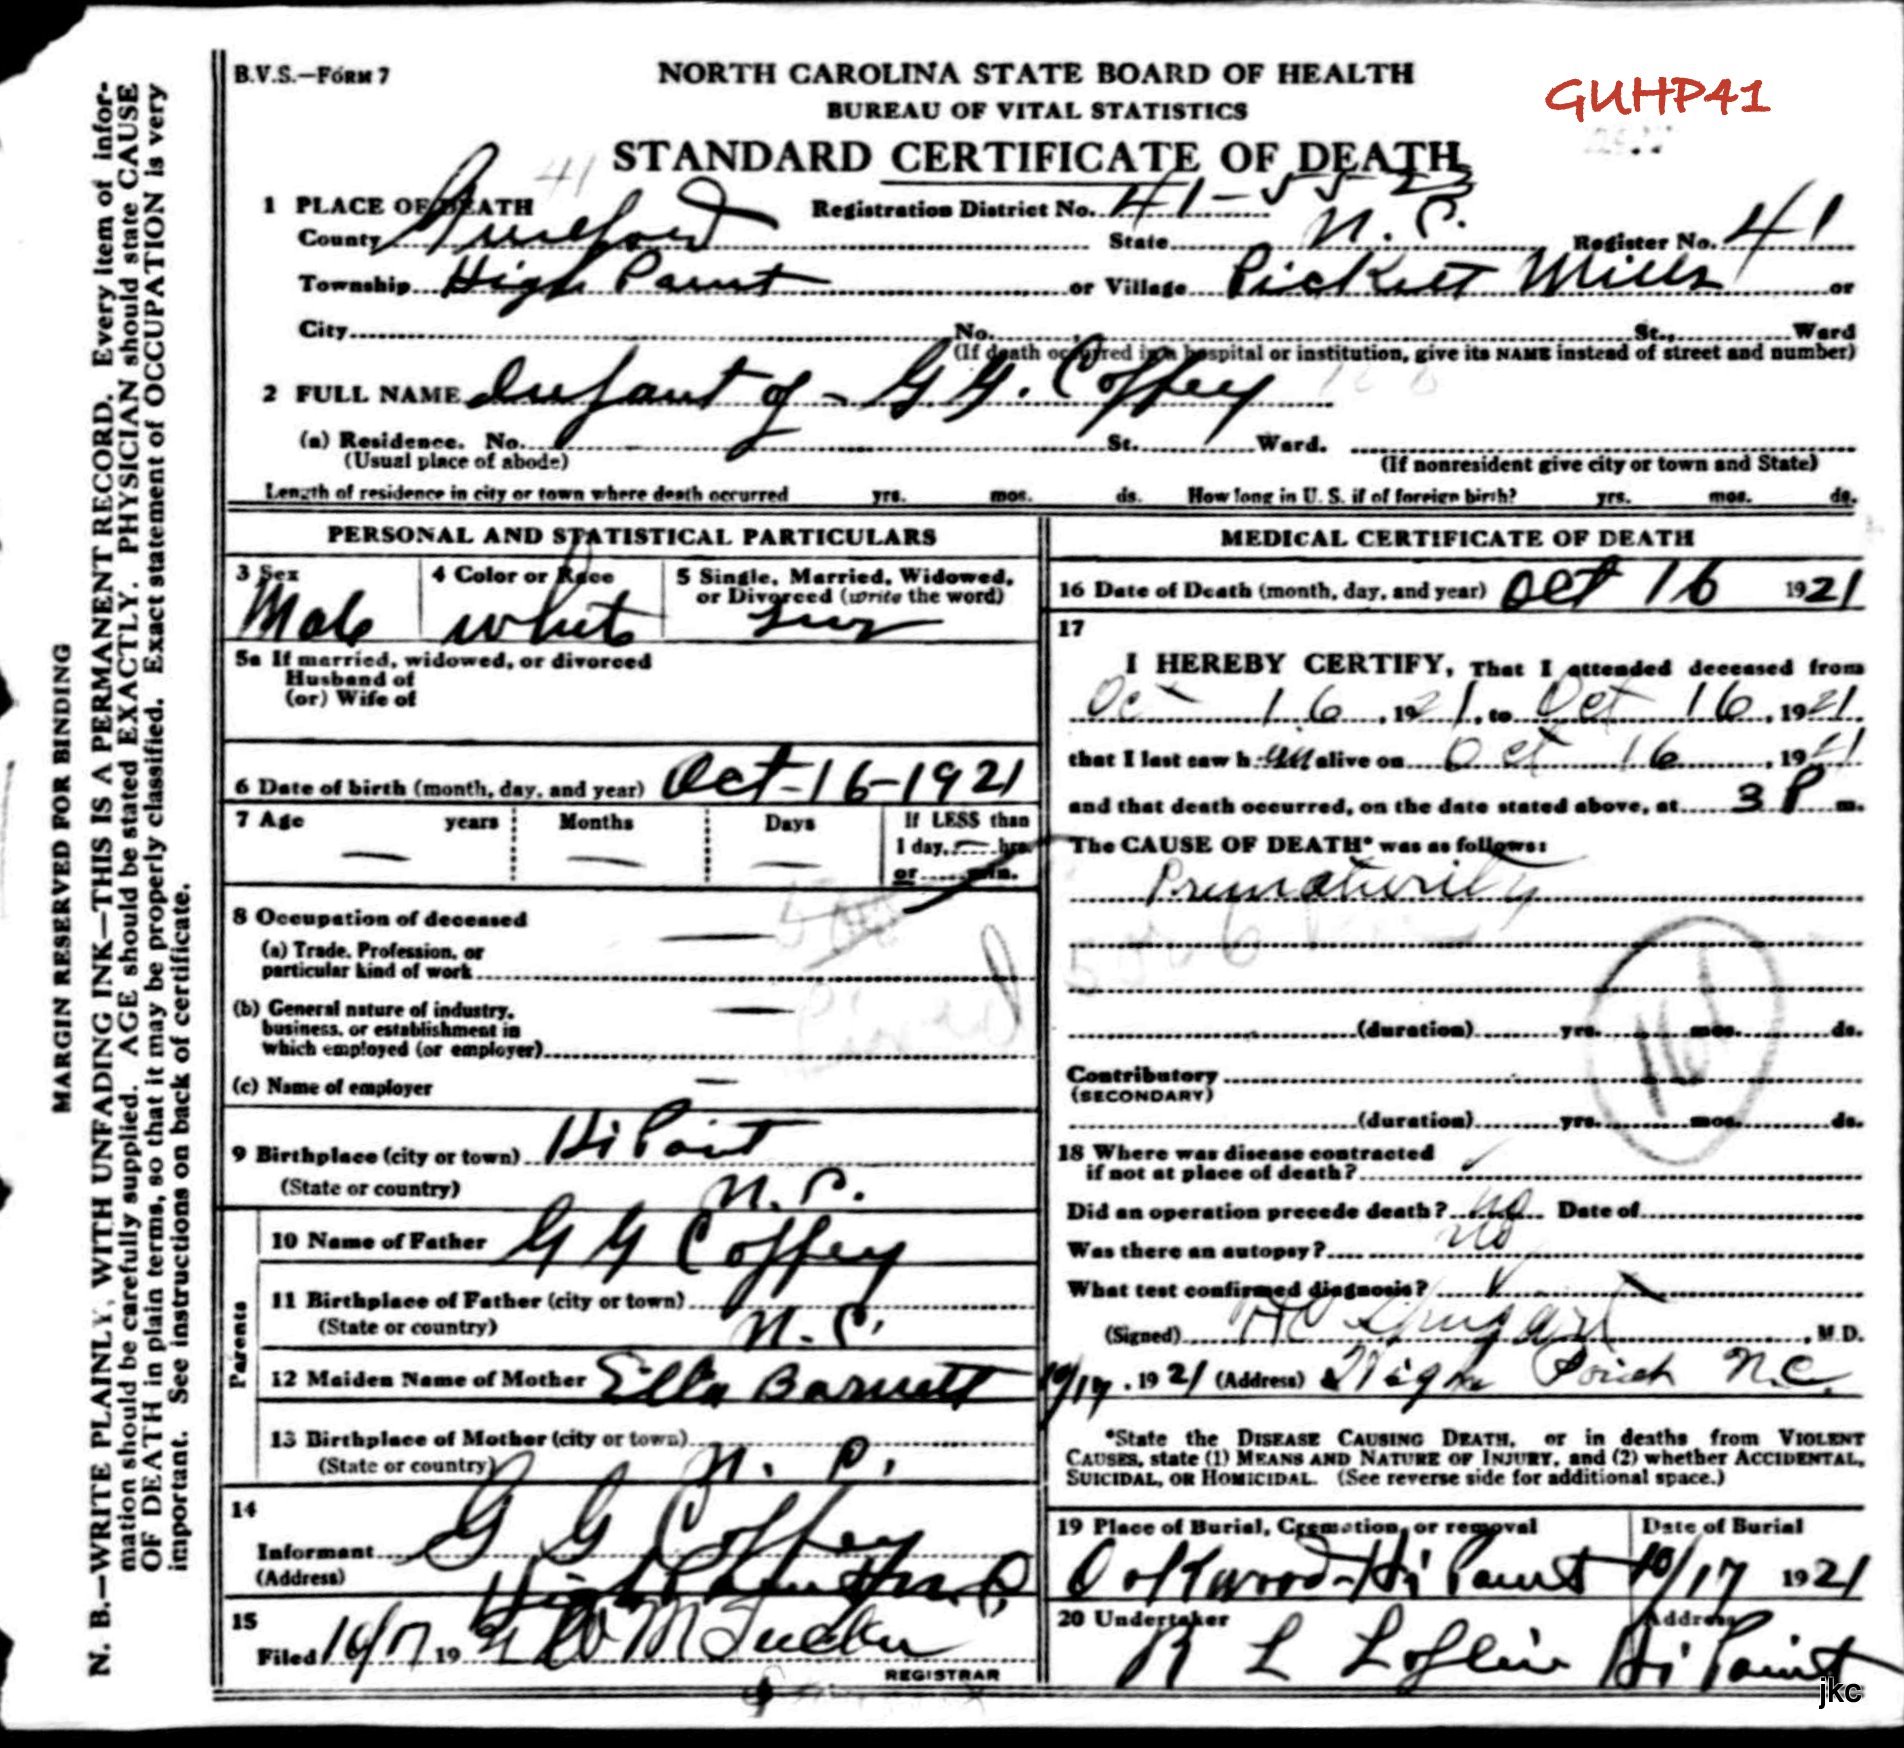 B.V.S.—FORM 7
NORTH CAROLINA STATE BOARD OF HEALTH
BUREAU OF VITAL STATISTICS
GUHP41
STANDARD CERTIFICATE OF DEATH
41
1 PLACE OF DEATH Registration District No. 41-5523
County Guilford State N.C. Register No. 41
Township High Point or Village Pickett Mills or
City No. St., Ward
(If death occurred in a hospital or institution, give its NAME instead of street and number)
2 FULL NAME Infant of - G G. Coffey
(a) Residence. No. St. Ward.
(Usual place of abode) (If nonresident give city or town and State)
Length of residence in city or town where death occurred yrs. mos. ds. How long in U. S. if of foreign birth? yrs. mos. ds.
PERSONAL AND STATISTICAL PARTICULARS
3 Sex 4 Color or Race 5 Single, Married, Widowed, or Divorced (write the word)
Male white Sing
5a If married, widowed, or divorced
Husband of
(or) Wife of
6 Date of birth (month, day, and year) Oct-16-1921
7 Age years Months Days If LESS than
1 day, — hrs.
or min.
— — —
8 Occupation of deceased —
(a) Trade, Profession, or
particular kind of work
(b) General nature of industry, —
business, or establishment in
which employed (or employer)
(c) Name of employer —
9 Birthplace (city or town) Hi Point
(State or country) N.C.
Parents
10 Name of Father G G Coffey
11 Birthplace of Father (city or town)
(State or country) N.C.
12 Maiden Name of Mother Ella Barnett
13 Birthplace of Mother (city or town)
(State or country) N. C.
14
Informant G G Coffey
(Address) High Point N.C.
15
Filed 10/17 1921 W M Tucker
REGISTRAR
MEDICAL CERTIFICATE OF DEATH
16 Date of Death (month, day, and year) Oct 16 1921
17
I HEREBY CERTIFY, That I attended deceased from
Oct 16, 1921, to Oct 16, 1921
that I last saw h im alive on Oct 16, 1921
and that death occurred, on the date stated above, at 3 P m.
The CAUSE OF DEATH* was as follows:
Prematurity
(duration) yrs. mos. ds.
Contributory
(SECONDARY)
(duration) yrs. mos. ds.
18 Where was disease contracted
if not at place of death?
Did an operation precede death? no Date of
Was there an autopsy? no
What test confirmed diagnosis?
(Signed) , M.D.
10/17, 1921 (Address) High Point N.C.
*State the DISEASE CAUSING DEATH, or in deaths from VIOLENT
CAUSES, state (1) MEANS AND NATURE OF INJURY, and (2) whether ACCIDENTAL,
SUICIDAL, OR HOMICIDAL. (See reverse side for additional space.)
19 Place of Burial, Cremation, or removal Date of Burial
Oakwood-Hi Point 10/17 1921
20 Undertaker Address
R L Loflin Hi Point
jkc
MARGIN RESERVED FOR BINDING
N. B.—WRITE PLAINLY, WITH UNFADING INK—THIS IS A PERMANENT RECORD. Every item of infor-
mation should be carefully supplied. AGE should be stated EXACTLY. PHYSICIAN should state CAUSE
OF DEATH in plain terms, so that it may be properly classified. Exact statement of OCCUPATION is very
important. See instructions on back of certificate.